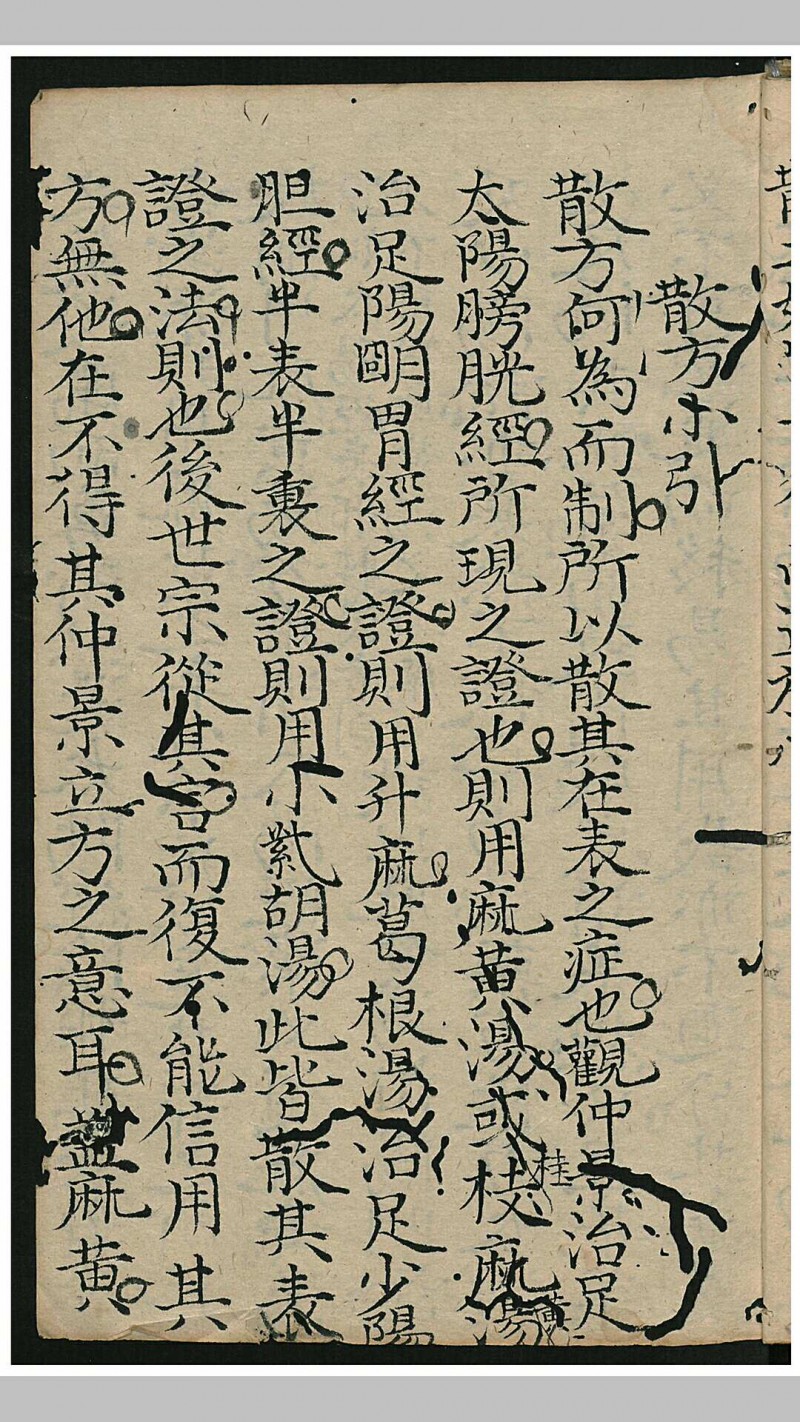 散方小引
散方何為而制所以散其在表之症也觀仲景治足
太陽膀胱經所現之證也則用麻黃湯或桂枝麻黃湯
治足陽明胃經之證則用升麻葛根湯治足少陽
胆經半表半裏之證則用小柴胡湯此皆散其表
證之法則也後世宗從其言而復不能信用其
方無他在不得其仲景立方之意耳盖麻黃